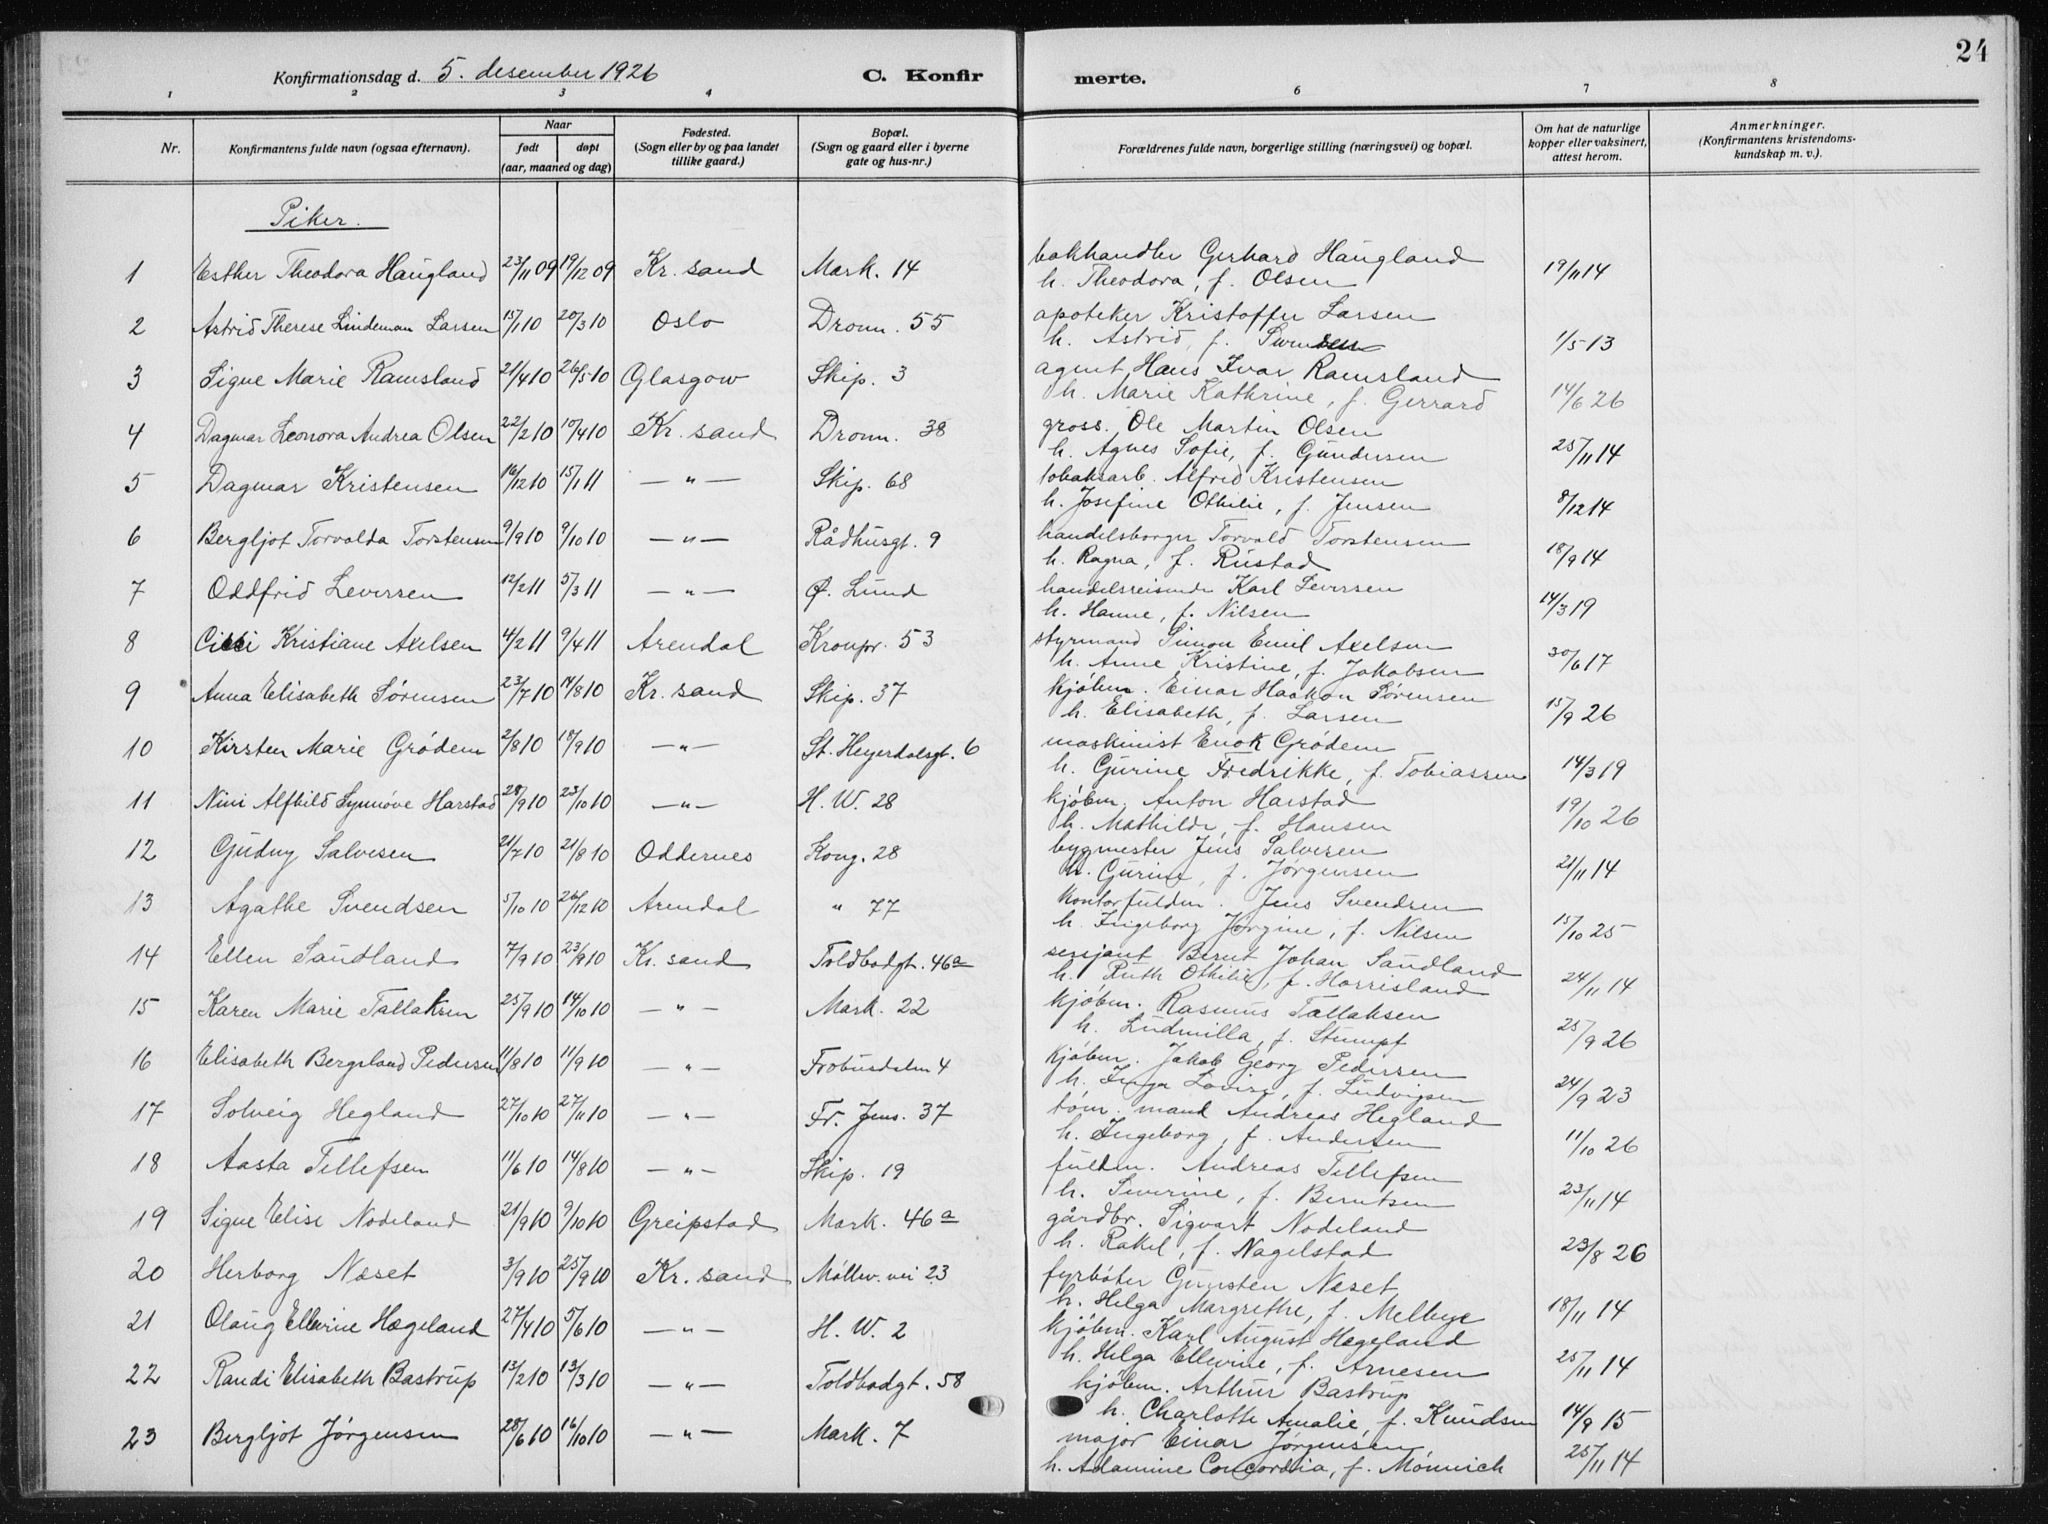 24
Konfirmationsdag d. 5. desember 1926 C. Konfir merte.
1 2 3 4 6 7 8
Nr. Konfirmantens fulde navn (ogsaa efternavn). Naar født døpt (aar, maaned og dag) Fødested. (Sogn eller by og paa landet tillike gaard.) Bopæl. (Sogn og gaard eller i byerne gate og hus-nr.) Forældrenes fulde navn, borgerlige stilling (næringsvei) og bopæl. Om hat de naturlige kopper eller vaksinert, attest herom. Anmerkninger. (Konfirmantens kristendoms- kundskap m. v.).
Piker.
1 Esther Theodora Haugland 23/11 09 19/12 09 Kr. sand Mark. 14 bokhandler Gerhard Haugland
h. Theodora, f. Olsen 19/11 14
2 Astrid Therese Lindeman Larsen 15/1 10 20/3 10 Oslo Dronn. 55 apoteker Kristoffer Larsen
h. Astrid, f. Svendsen 1/5 13
3 Signe Marie Ramsland 21/4 10 26/5 10 Glasgow Skip. 3 agent Hans Ivar Ramsland
h. Marie Kathrine, f. Gerrard 14/6 26
4 Dagmar Leonora Andrea Olsen 22/2 10 10/4 10 Kr. sand Dronn. 38 gross. Ole Martin Olsen
h. Agnes Sofie, f. Gundersen 25/11 14
5 Dagmar Kristensen 16/12 10 15/1 11 — " — Skip. 68 tobaksarb. Alfred Kristensen
h. Josefine Othilie, f. Jensen 8/12 14
6 Bergljot Torvalda Torstensen 9/9 10 9/10 10 — " — Rådhusgt. 9 handelsborger Torvald Torstensen
h. Ragna, f. Rustad 18/9 14
7 Oddfrid Leversen 12/2 11 5/3 11 — " — Ø. Lund handelsreisende Karl Leversen
h. Hanne, f. Nilsen 14/3 19
8 Kristiane Axelsen 4/2 11 9/4 11 Arendal Kronpr. 53 styrmand Simon Emil Axelsen
h. Anne Kristine, f. Jakobsen 30/6 17
9 Anna Elisabeth Sørensen 23/7 10 14/8 10 Kr. sand Skip. 37 kjøbm. Einar Haakon Sørensen
h. Elisabeth, f. Larsen 15/9 26
10 Kirsten Marie Grødem 2/8 10 18/9 10 — " — St. Heyerdalsgt. 6 maskinist Enok Grødem
h. Gurine Fredrikke, f. Tobiassen 14/3 19
11 Nini Alfhild Synnøve Harstad 28/9 10 23/10 10 — " — H. W. 28 kjøbm. Anton Harstad
h. Mathilde, f. Hansen 19/10 26
12 Gudny Salvesen 21/7 10 21/8 10 Oddernes Kong. 28 bygmester Jens Salvesen
h. Gurine, f. Jørgensen 21/11 14
13 Agathe Svendsen 5/10 10 26/12 10 Arendal " 77 kontorfuldm. Jens Svendsen
h. Ingeborg Jørgine, f. Nilsen 15/10 25
14 Ellen Sandland 7/9 10 23/9 10 Kr. sand Toldbodgt. 46a sersjant Bernt Johan Sandland
h. Ruth Othilie, f. Horrisland 24/11 14
15 Karen Marie Tallaksen 25/9 10 14/10 10 — " — Mark. 22 kjøbm. Rasmus Tallaksen
h. Ludmilla, f. Stumpf 25/9 26
16 Elisabeth Bergsland Pedersen 11/8 10 11/9 10 — " — Frobusdalen 4 kjøbm. Jakob Georg Pedersen
h. Inga Lovise, f. Ludvigsen 24/9 23
17 Solveig Hegland 27/10 10 27/11 10 — " — Fr. Jens. 37 tøm. mand Andreas Hegland
h. Ingeborg, f. Andersen 11/10 26
18 Aasta Tellefsen 11/6 10 14/8 10 — " — Skip. 19 fuldm. Andreas Tellefsen
h. Severine, f. Berntsen 23/11 14
19 Signe Elise Nodeland 21/9 10 9/10 10 Greipstad Mark. 46a gårdbr. Sigvart Nodeland
h. Rakel, f. Nagelstad 23/8 26
20 Herborg Næset 3/9 10 25/9 10 Kr. sand Møllev. vei 23 fyrbøter Gunsten Næset
h. Helga Margrethe, f. Melbye 18/11 14
21 Olaug Ellevine Hægeland 27/4 10 5/6 10 — " — H. W. 2 kjøbm. Karl August Hegeland
h. Helga Ellevine, f. Arnesen 25/11 14
22 Randi Elisabeth Bastrup 13/2 10 13/3 10 — " — Toldbodgt. 58 kjøbm. Arthur Bastrup
h. Charlotte Amalie, f. Knudsen 14/9 15
23 Bergljot Jørgensen 28/6 10 16/10 10 — " — Mark. 7 major Einar Jørgensen
h. Adamine Concordia, f. Mönnich 25/11 14